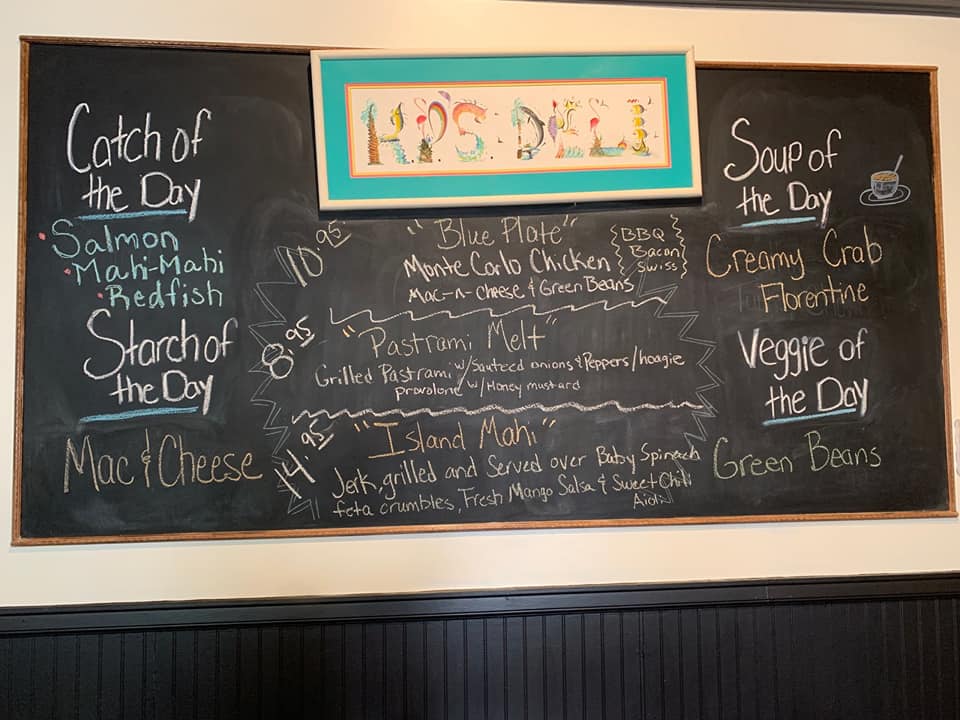 R.P.'S. DELI
Catch of
the Day
Salmon
Mahi-Mahi
Redfish
Starch of
the Day
Mac & Cheese
10.95
"Blue Plate"
Monte Carlo Chicken
BBQ
Bacon
Swiss
Mac-n-Cheese & Green Beans
8.95
"Pastrami Melt"
Grilled Pastrami w/Sauteed onions & Peppers/hoagie
provolone w/Honey mustard
14.95
"Island Mahi"
Jerk, grilled and Served over Baby Spinach
feta crumbles, Fresh Mango Salsa & Sweet Chili
Aioli
Soup of
the Day
Creamy Crab
Florentine
Veggie of
the Day
Green Beans